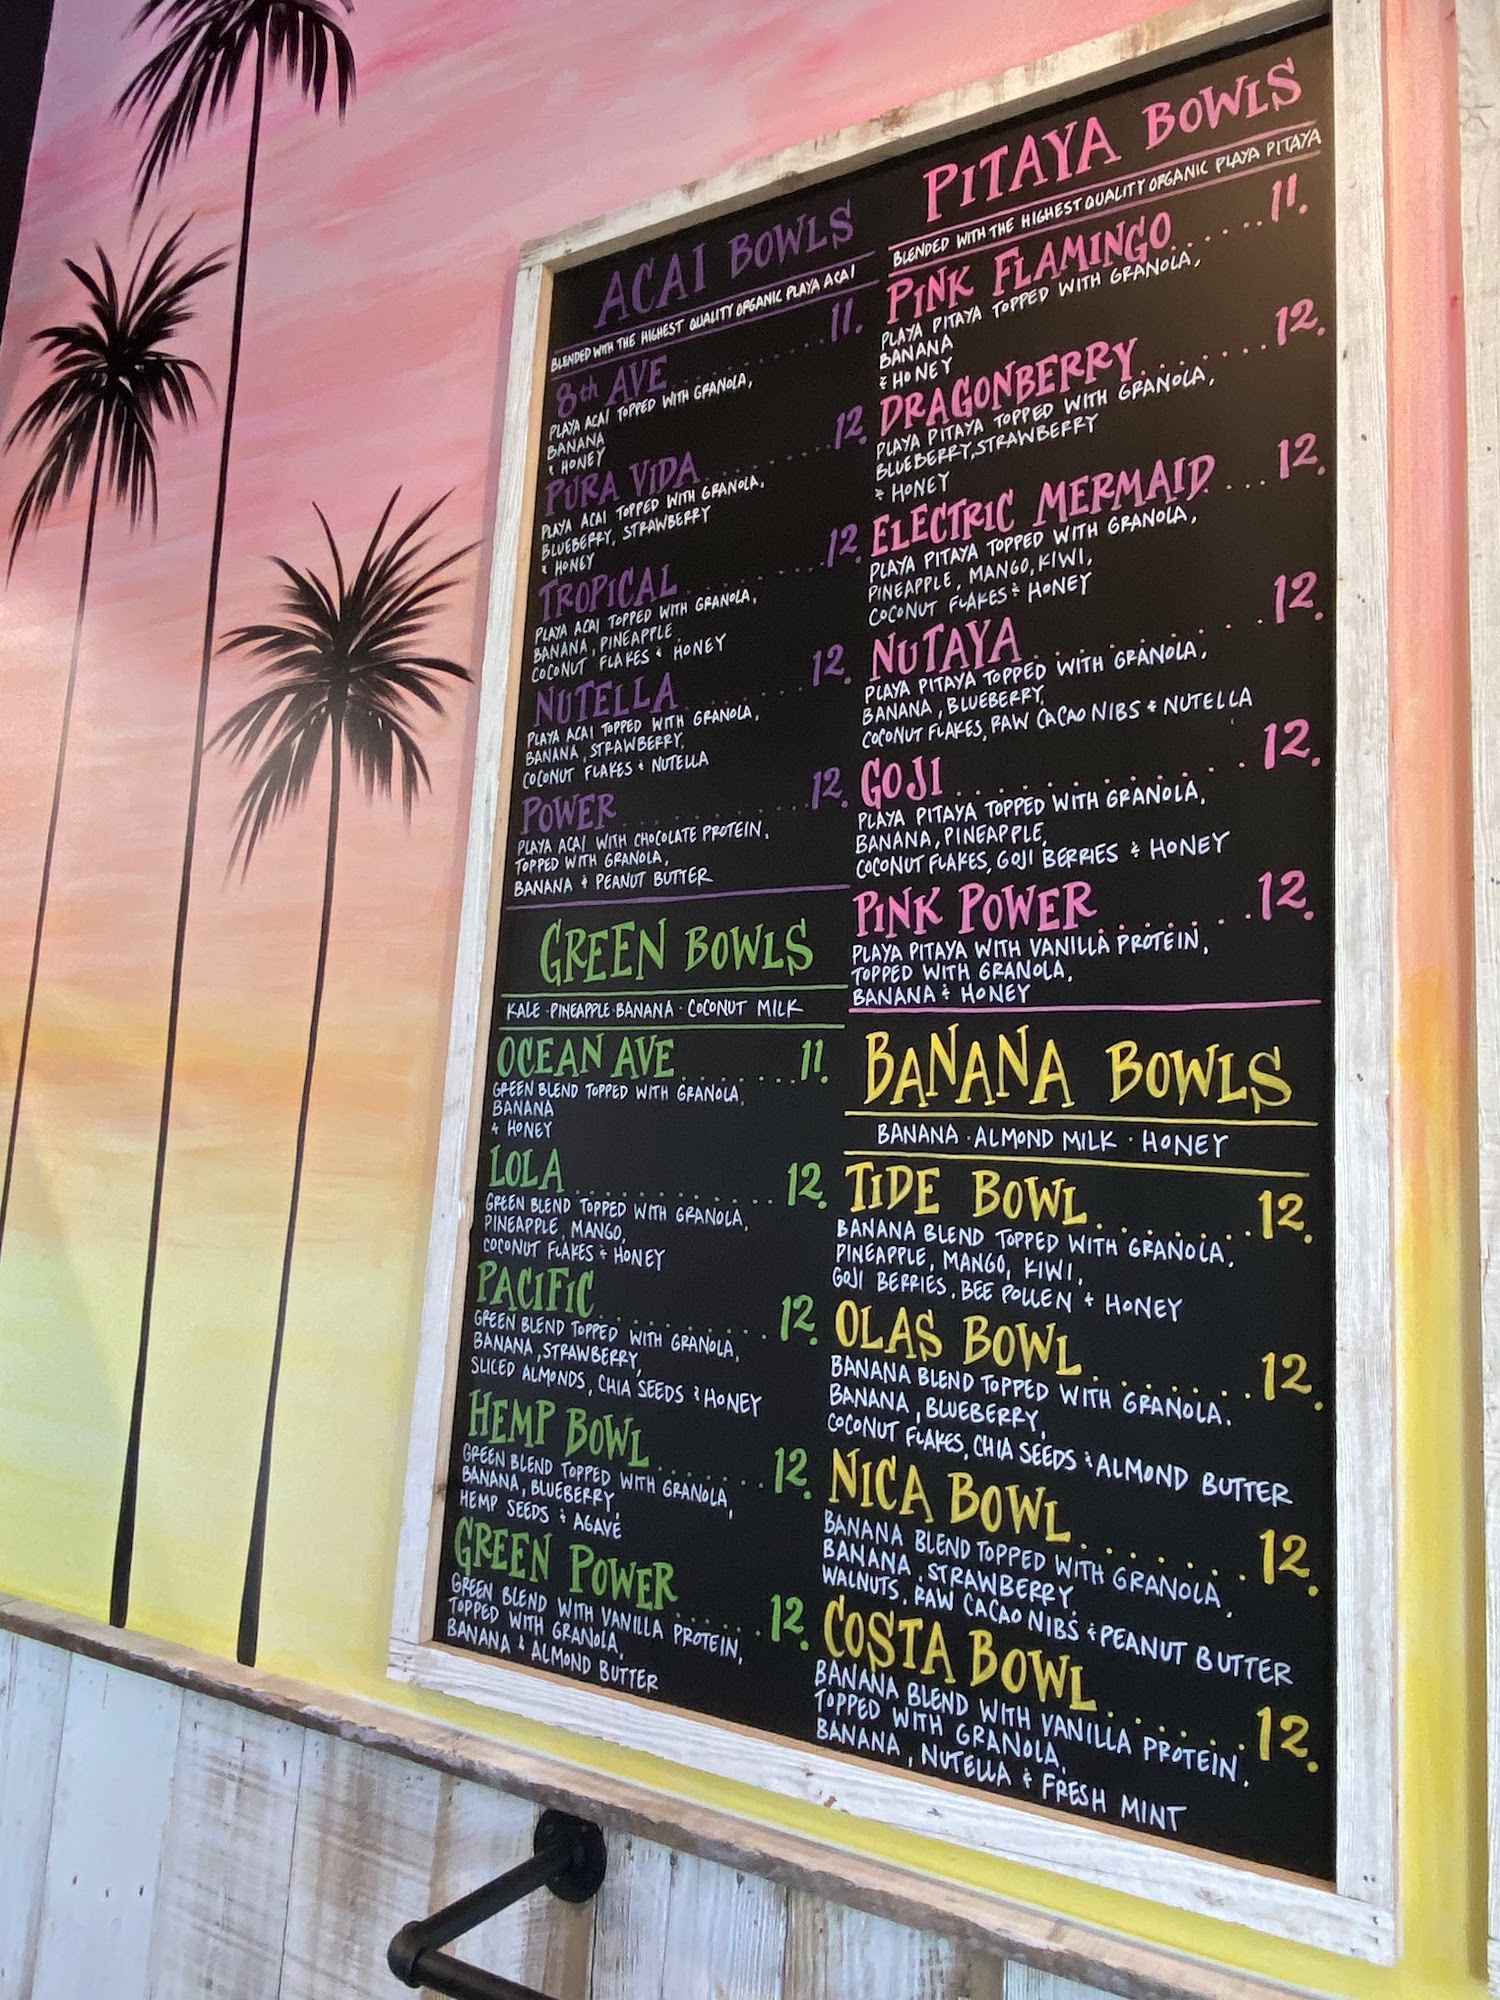 ACAI BOWLS
BLENDED WITH THE HIGHEST QUALITY ORGANIC PLAYA ACAI
8th AVE........11.
PLAYA ACAI TOPPED WITH GRANOLA,
BANANA
& HONEY
PURA VIDA........12.
PLAYA ACAI TOPPED WITH GRANOLA,
BLUEBERRY, STRAWBERRY
& HONEY
TROPICAL........12.
PLAYA ACAI TOPPED WITH GRANOLA,
BANANA, PINEAPPLE
COCONUT FLAKES & HONEY
NUTELLA........12.
PLAYA ACAI TOPPED WITH GRANOLA,
BANANA, STRAWBERRY,
COCONUT FLAKES & NUTELLA
POWER........12.
PLAYA ACAI WITH CHOCOLATE PROTEIN,
TOPPED WITH GRANOLA,
BANANA & PEANUT BUTTER
GREEN BOWLS
KALE · PINEAPPLE · BANANA · COCONUT MILK
OCEAN AVE........11.
GREEN BLEND TOPPED WITH GRANOLA,
BANANA
& HONEY
LOLA........12.
GREEN BLEND TOPPED WITH GRANOLA,
PINEAPPLE, MANGO,
COCONUT FLAKES & HONEY
PACIFIC........12.
GREEN BLEND TOPPED WITH GRANOLA,
BANANA, STRAWBERRY,
SLICED ALMONDS, CHIA SEEDS & HONEY
HEMP BOWL........12.
GREEN BLEND TOPPED WITH GRANOLA,
BANANA, BLUEBERRY,
HEMP SEEDS & AGAVE
GREEN POWER......12.
GREEN BLEND WITH VANILLA PROTEIN,
TOPPED WITH GRANOLA,
BANANA & ALMOND BUTTER
PITAYA BOWLS
BLENDED WITH THE HIGHEST QUALITY ORGANIC PLAYA PITAYA
PINK FLAMINGO......11.
PLAYA PITAYA TOPPED WITH GRANOLA,
BANANA
& HONEY
DRAGONBERRY.......12.
PLAYA PITAYA TOPPED WITH GRANOLA,
BLUEBERRY, STRAWBERRY
& HONEY
ELECTRIC MERMAID....12.
PLAYA PITAYA TOPPED WITH GRANOLA,
PINEAPPLE, MANGO, KIWI,
COCONUT FLAKES & HONEY
NUTAYA.........12.
PLAYA PITAYA TOPPED WITH GRANOLA,
BANANA, BLUEBERRY,
COCONUT FLAKES, RAW CACAO NIBS & NUTELLA
GOJI...........12.
PLAYA PITAYA TOPPED WITH GRANOLA,
BANANA, PINEAPPLE,
COCONUT FLAKES, GOJI BERRIES & HONEY
PINK POWER........12.
PLAYA PITAYA WITH VANILLA PROTEIN,
TOPPED WITH GRANOLA,
BANANA & HONEY
BANANA BOWLS
BANANA · ALMOND MILK · HONEY
TIDE BOWL.......12.
BANANA BLEND TOPPED WITH GRANOLA,
PINEAPPLE, MANGO, KIWI,
GOJI BERRIES, BEE POLLEN & HONEY
OLAS BOWL........12.
BANANA BLEND TOPPED WITH GRANOLA,
BANANA, BLUEBERRY,
COCONUT FLAKES, CHIA SEEDS & ALMOND BUTTER
NICA BOWL........12.
BANANA BLEND TOPPED WITH GRANOLA,
BANANA, STRAWBERRY,
WALNUTS, RAW CACAO NIBS & PEANUT BUTTER
COSTA BOWL.......12.
BANANA BLEND WITH VANILLA PROTEIN,
TOPPED WITH GRANOLA,
BANANA, NUTELLA & FRESH MINT